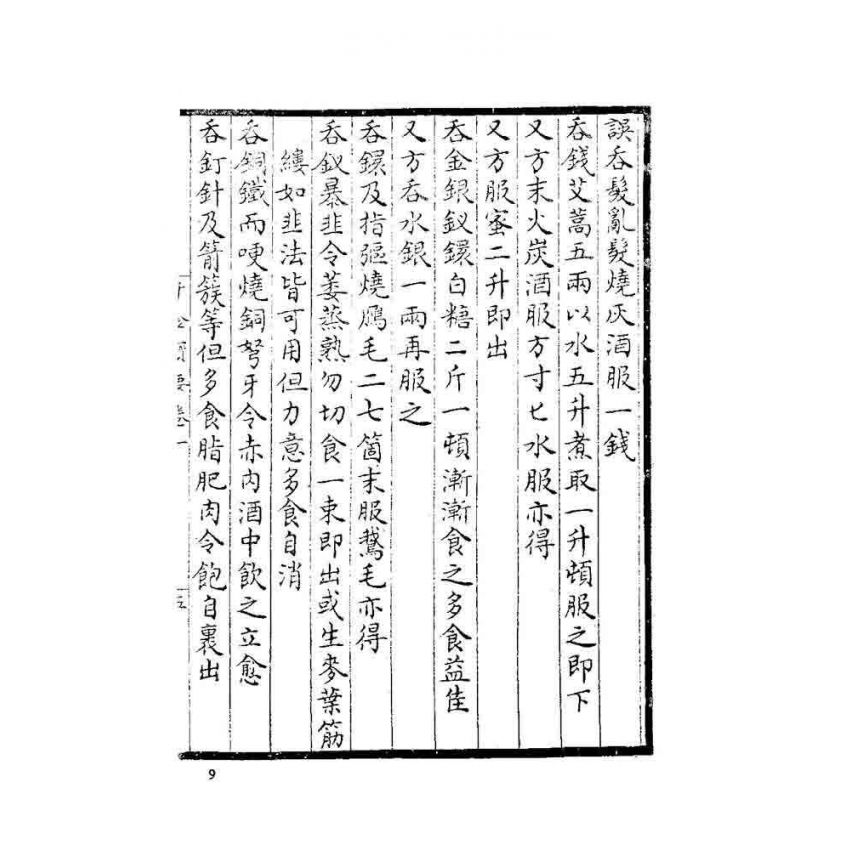 誤吞髮亂髮燒灰酒服一錢
吞錢艾蒿五兩以水五升煮取一升頓服之即下
又方末火炭酒服方寸匕水服亦得
又方服蜜二升即出
吞金銀釵鐶白糖二斤一頓漸漸食之多食益佳
又方吞水銀一兩再服之
吞鐶及指彄燒鴈毛二七箇末服鵝毛亦得
吞釵暴韭令萎蒸熟勿切食一束即出或生麥葉筋
縷如韭法皆可用但力意多食自消
吞銅鐵而哽燒銅弩牙令赤內酒中飲之立愈
吞釘針及箭簇等但多食脂肥肉令飽自裹出
9